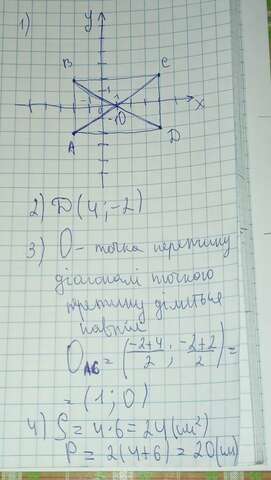 1)
y
B
C
1
1
O
x
A
D
2) D(4;-2)
3) O - точка перетину
діагоналі точкого
перетину діляться
навпіл
O_AC = (-2+4/2 ; -2+2/2) =
= (1;0)
4) S = 4·6 = 24 (см²)
P = 2(4+6) = 20 (см)